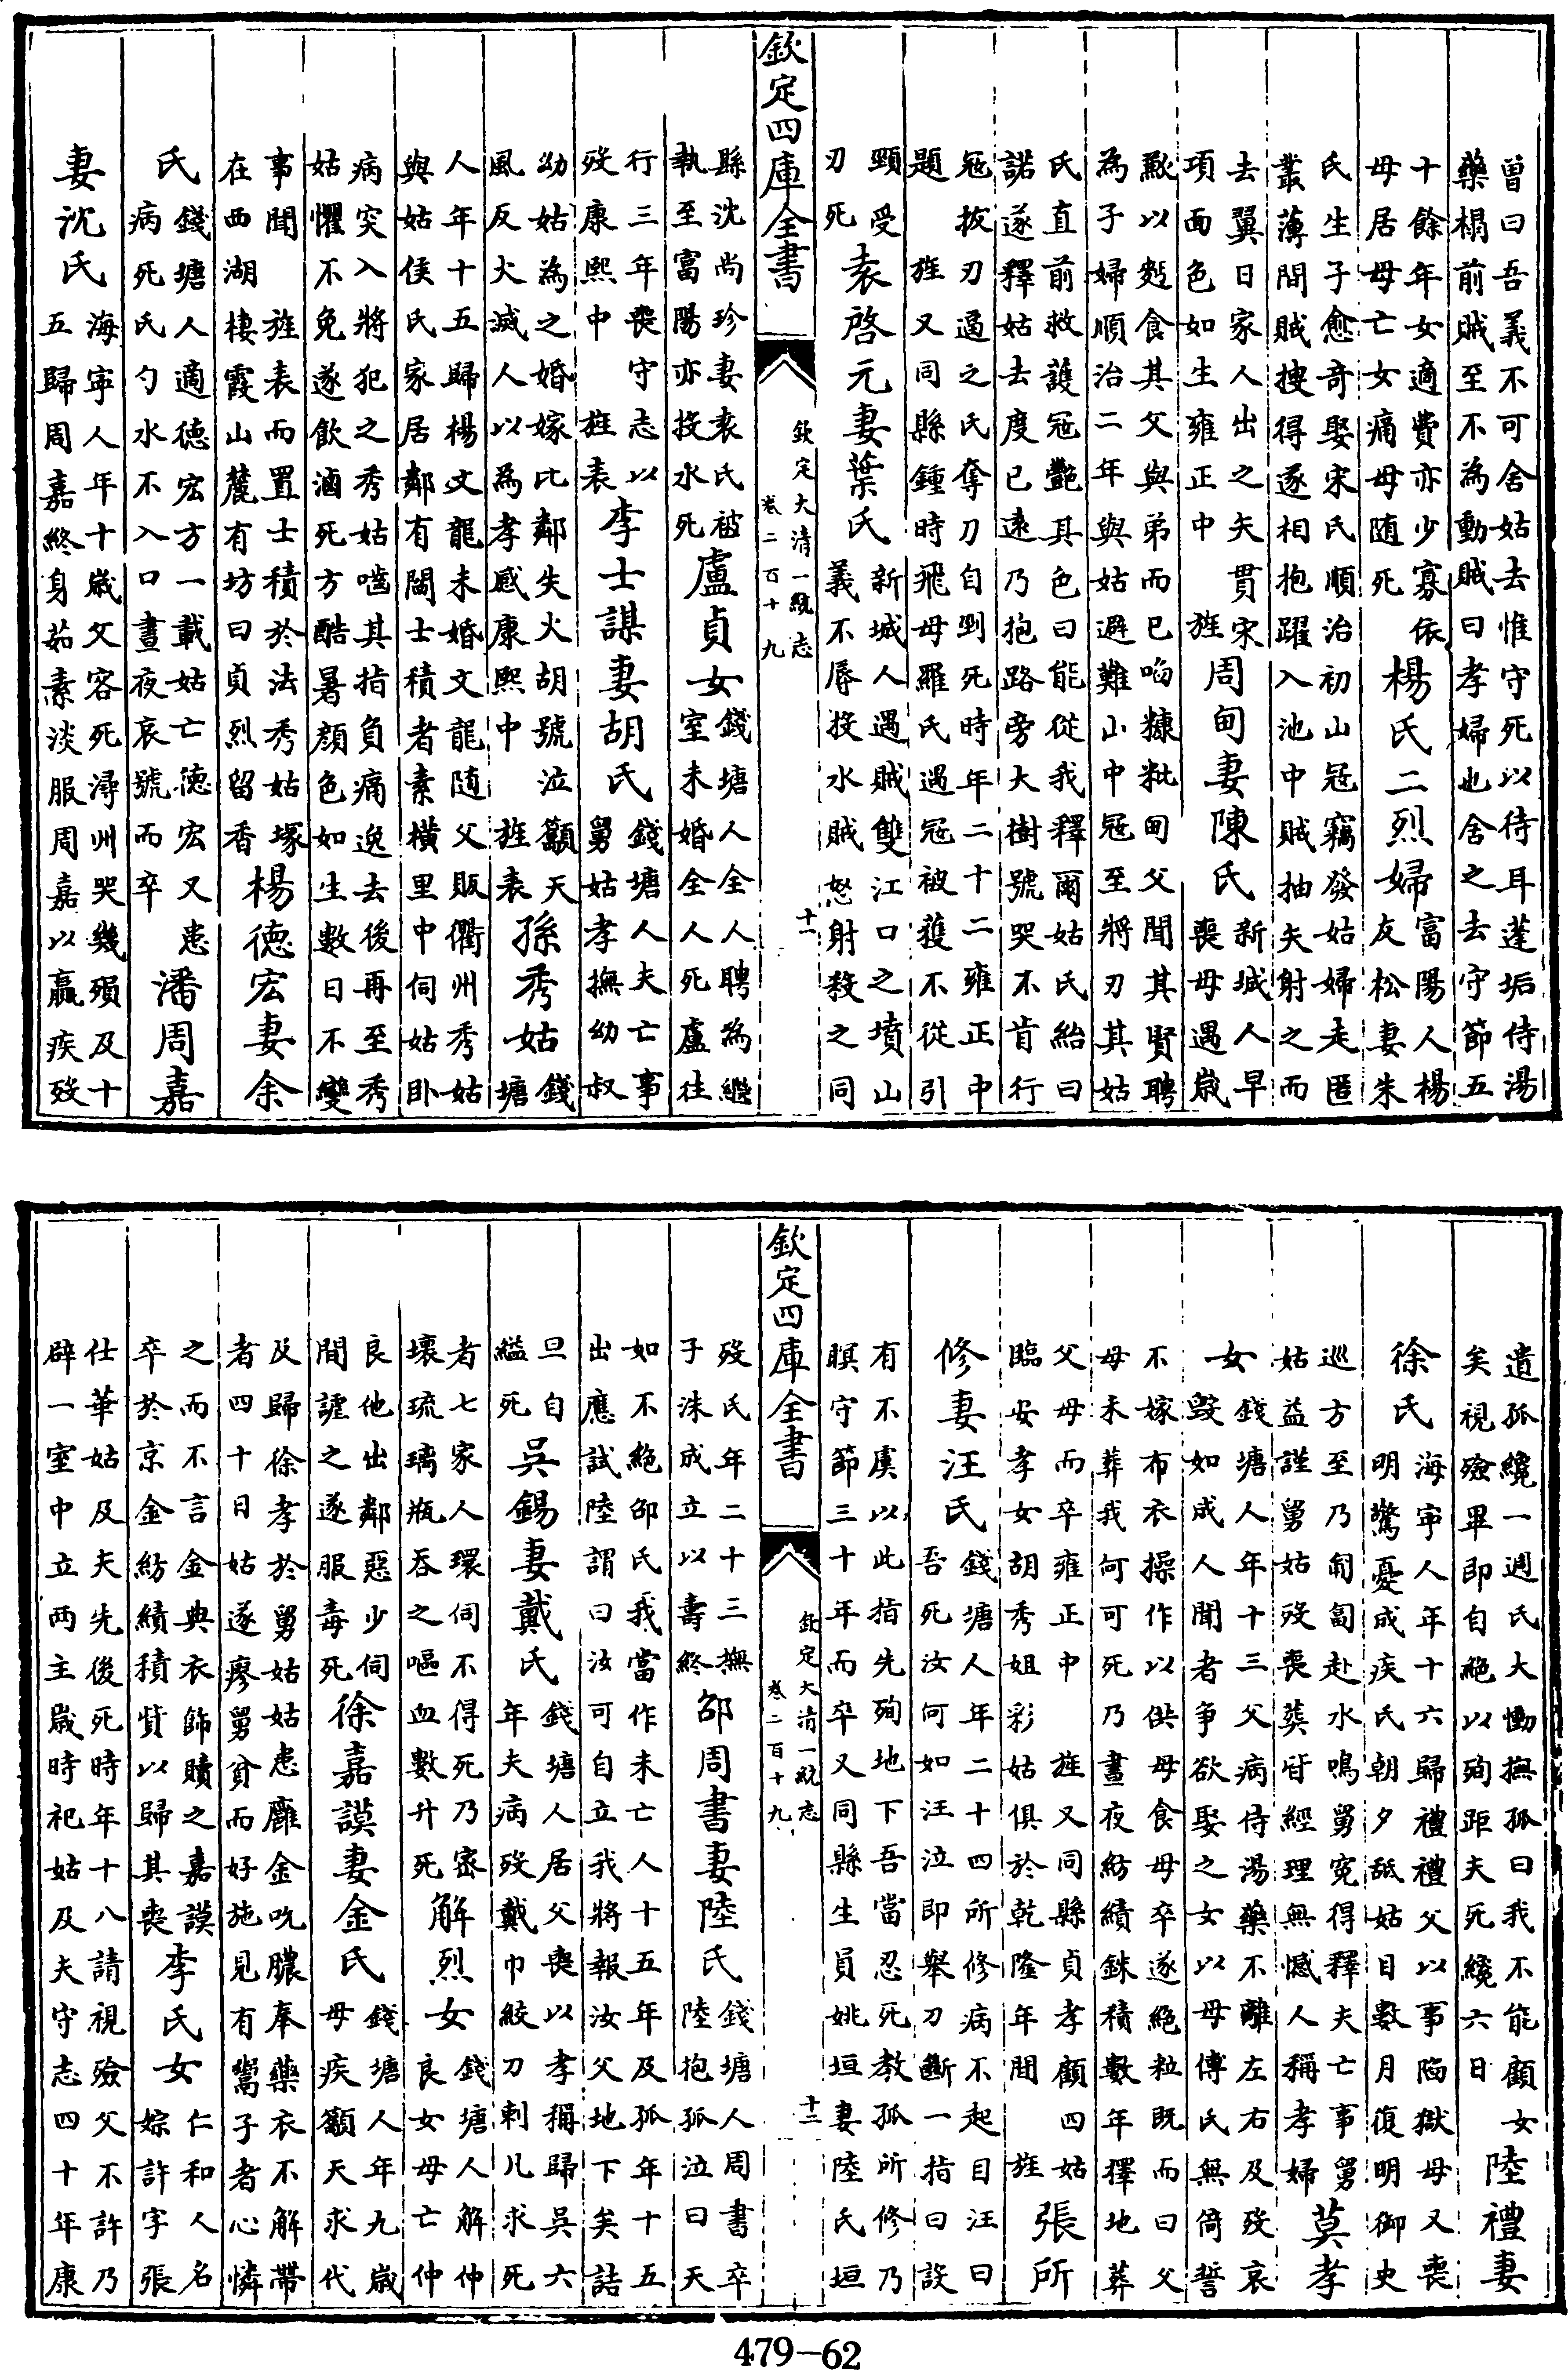 曾曰吾義不可舍姑去惟守死以待耳蓬垢侍湯
藥榻前賊至不為動賊曰孝婦也舍之去守節五
十餘年女適費亦少寡依
母居母亡女痛母随死
楊氏二烈婦
富陽人楊
友松妻朱
氏生子愈奇娶宋氏順治初山冦竊發姑婦走匿
叢薄間賊搜得逐相抱躍入池中賊抽矢射之而
去翼日家人出之矢貫宋
項面色如生雍正中旌
周甸妻陳氏
新城人早
喪母遇歲
歉以麨食其父與弟而已啗糠粃甸父聞其賢聘
為子婦順治二年與姑避難山中冦至將刃其姑
氏直前救護冦艷其色曰能從我釋爾姑氏紿曰
諾遂釋姑去度已遠乃抱路旁大樹號哭不肯行
冦拔刃逼之氏奪刀自刎死時年二十二雍正中
題旌又同縣鍾時飛母羅氏遇冦被獲不從引
頸受
刃死
袁啓元妻葉氏
新城人遇賊雙江口之墳山
義不辱投水賊怒射殺之同
欽定四庫全書
欽定大清一統志
卷二百十九
十一
縣沈尚珍妻袁氏被
執至富陽亦投水死
盧貞女
錢塘人全人聘為繼
室未婚全人死盧往
行三年喪守志以
歿康熙中旌表
李士謀妻胡氏
錢塘人夫亡事
舅姑孝撫幼叔
幼姑為之婚嫁比鄰失火胡號泣籲天
風反火滅人以為孝感康熙中旌表
孫秀姑
錢
塘
人年十五歸楊文龍未婚文龍随父販衢州秀姑
與姑侯氏家居鄰有閩士積者素横里中伺姑卧
病突入將犯之秀姑嚙其指負痛逸去後再至秀
姑懼不免遂飲滷死方酷暑顔色如生數日不變
事聞旌表而置士積於法秀姑塚
在西湖棲霞山麓有坊曰貞烈留香
楊德宏妻余
氏
錢塘人適德宏方一載姑亡德宏又患
病死氏勺水不入口晝夜哀號而卒
潘周嘉
妻沈氏
海寧人年十歲父客死潯州哭幾殞及十
五歸周嘉終身茹素淡服周嘉以羸疾歿
遺孤纔一週氏大慟撫孤曰我不能顧女
矣視殮畢即自絶以殉距夫死纔六日
陸禮妻
徐氏
海寧人年十六歸禮禮父以事陷獄母又喪
明驚憂成疾氏朝夕舐姑目數月復明御史
巡方至乃匍匐赴水鳴舅寃得釋夫亡事舅
姑益謹舅姑歿喪葬皆經理無憾人稱孝婦
莫孝
女
錢塘人年十三父病侍湯藥不離左右及歿哀
毁如成人聞者争欲娶之女以母傅氏無倚誓
不嫁布衣操作以供母食母卒遂絶粒既而曰父
母未葬我何可死乃晝夜紡績銖積數年擇地葬
父母而卒雍正中旌又同縣貞孝顧四姑
臨安孝女胡秀姐彩姑俱於乾隆年間旌
張所
修妻汪氏
錢塘人年二十四所修病不起目汪曰
吾死汝何如汪泣即舉刀斷一指曰設
有不虞以此指先殉地下吾當忍死教孤所修乃
瞑守節三十年而卒又同縣生員姚垣妻陸氏垣
欽定四庫全書
欽定大清一統志
卷二百十九
十二
歿氏年二十三撫
子洙成立以壽終
邵周書妻陸氏
錢塘人周書卒
陸抱孤泣曰天
如不絶邵氏我當作未亡人十五年及孤年十五
出應試陸謂曰汝可自立我將報汝父地下矣詰
旦自
縊死
吳錫妻戴氏
錢塘人居父喪以孝稱歸吳六
年夫病歿戴巾絞刀刺几求死
者七家人環伺不得死乃密
壞琉璃瓶吞之嘔血數升死
解烈女
錢塘人解仲
良女母亡仲
良他出鄰惡少伺
間謔之遂服毒死
徐嘉謨妻金氏
錢塘人年九歲
母疾籲天求代
及歸徐孝於舅姑姑患癰金吮膿奉藥衣不解帶
者四十日姑遂瘳舅貧而好施見有鬻子者心憐
之而不言金典衣飾贖之嘉謨
卒於京金紡績積貲以歸其喪
李氏女
仁和人名
婃許字張
仕華姑及夫先後死時年十八請視殮父不許乃
辟一室中立两主歲時祀姑及夫守志四十年康
479-62